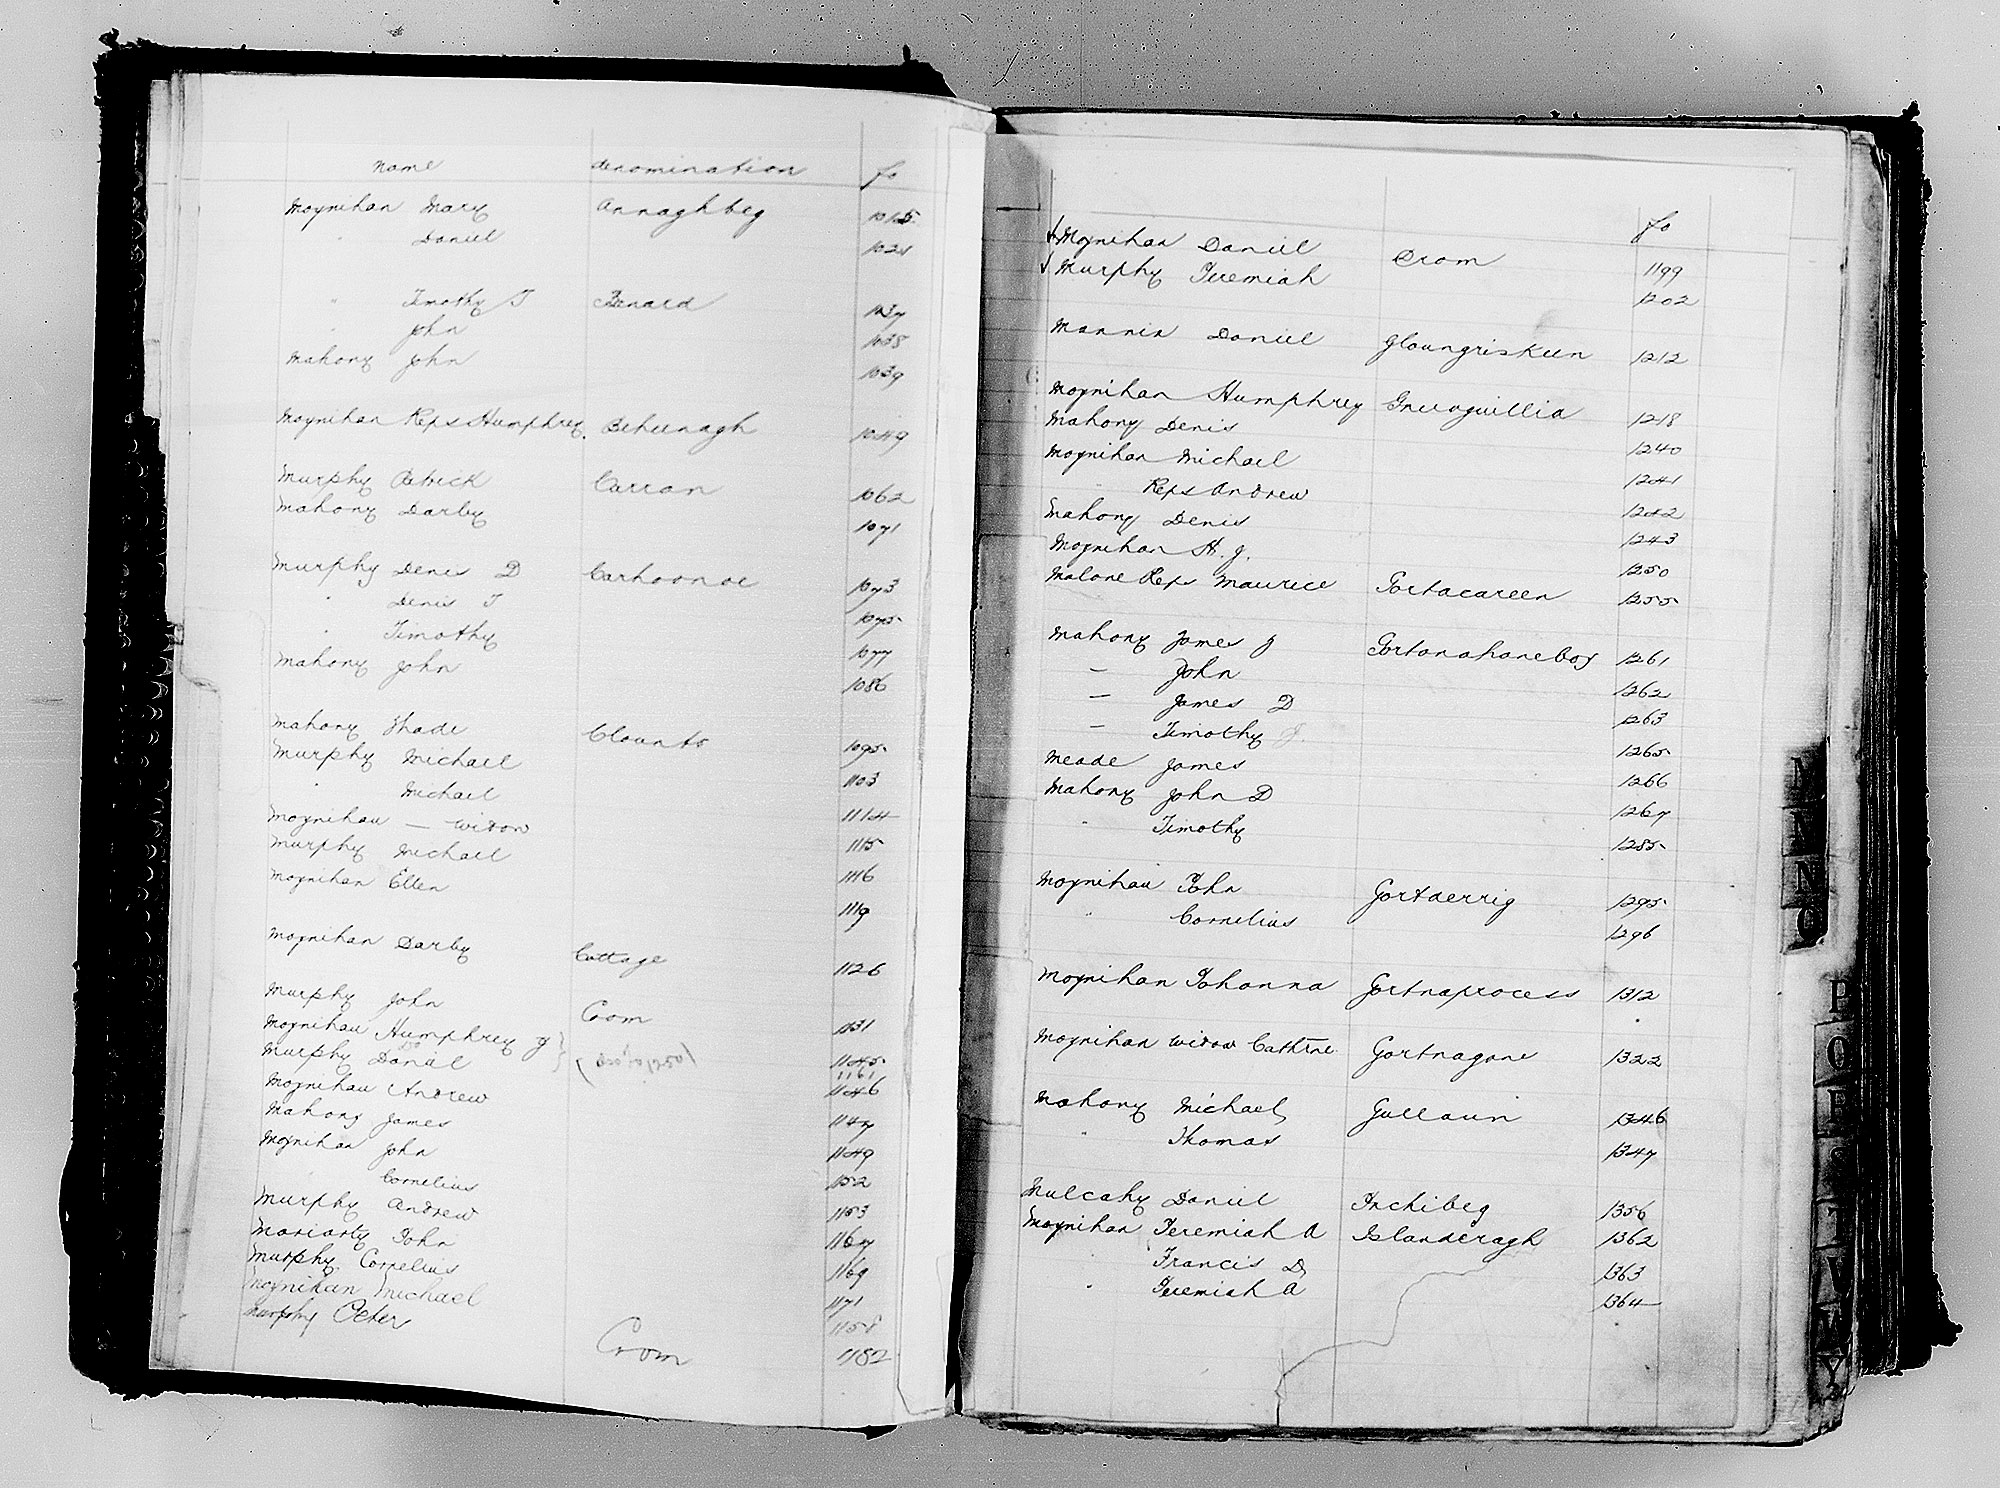 name denomination fo
Moynihan Mary Annaghbeg 1015
" Daniel 1021
" Timothy T Banard 1037
" John 1038
Mahony John 1039
Moynihan Reps Humphrey Beheenagh 1049
Murphy Patrick Carran 1062
Mahony Darby 1071
Murphy Denis D Carhoonoe 1073
" Denis T 1075
" Timothy 1077
Mahony John 1086
Mahony Thade Clounts 1095
Murphy Michael 1103
" Michael 1114
Moynihan — Widow 1115
Murphy Michael 1116
Moynihan Ellen 1119
Moynihan Darby Cottage 1126
Murphy John Crom 1131
Moynihan Humphrey J 1145
1161
Murphy Daniel 1146
Moynihan Andrew 1147
Mahony James 1149
Moynihan John 1152
" Cornelius 1153
Murphy Andrew 1167
Moriarty John 1169
Murphy Cornelius 1171
Moynihan Michael 1158
Murphy Peter Crom 1182
fo
Moynihan Daniel Crom 1199
Murphy Jeremiah 1202
Mannix Daniel Gloungriskeen 1212
Moynihan Humphrey Gneeveguillia 1218
Mahony Denis 1240
Moynihan Michael 1241
" Reps Andrew 1242
Mahony Denis 1243
Moynihan H. J. 1250
Malone Reps Maurice Gortacareen 1255
Mahony James J Gortanahaneboy 1261
— John 1262
— James D 1263
— Timothy J 1265
Meade James 1266
Mahony John D 1267
" Timothy 1285
Moynihan John Gortderrig 1295
" Cornelius 1296
Moynihan Johanna Gortnaprocess 1312
Moynihan Widow Cathrne Gortnagane 1322
Mahony Michael Gullaun 1346
" Thomas 1347
Mulcahy Daniel Inchibeg 1356
Moynihan Jeremiah A Islanderagh 1362
Francis D 1363
" Jeremiah A 1364
M
N
O
P
Q
R
S
T
V
W
Y